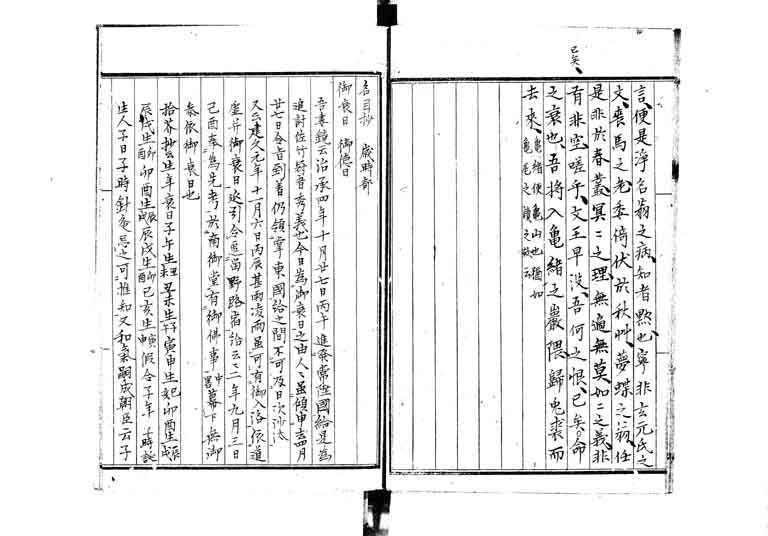 已矣
言、便是淨名翁之病、知者黙也、寧非玄元氏之
文、喪馬之老、委倚伏於秋艸、夢蝶之翁、任
是非於春叢、冥々之理、無適無莫、如々之義、非
有非空、嗟乎、文王早没、吾何之恨、已矣、命
之衰也、吾将入亀緒之巌隈、歸兎裘而
去来、亀緒便亀山也猶如
亀尾之讀之故云
名目抄 歳時部
御衰日 御德日
吾妻鏡云治承四年十月廿七日丙午進発常陸國給是為
追討佐竹冠者秀義也今日為御衰日之由人々雖傾申去四月
廿七日令旨到着仍領掌東國給之間不可及日次沙汰
又云建久元年十一月六日丙辰甚雨凌雨雖可有御入洛依道
虚并御衰日延引令逗留野路宿給云二年九月三日
己酉奉為先考於南御堂有御佛事幕下無御
参依御衰日也
拾芥抄云生年衰日子午生丑未丑未生子午寅申生卯酉生辰戌
辰戌生卯酉
生人子日子時針灸忌之可推知又和氣嗣成朝臣云子